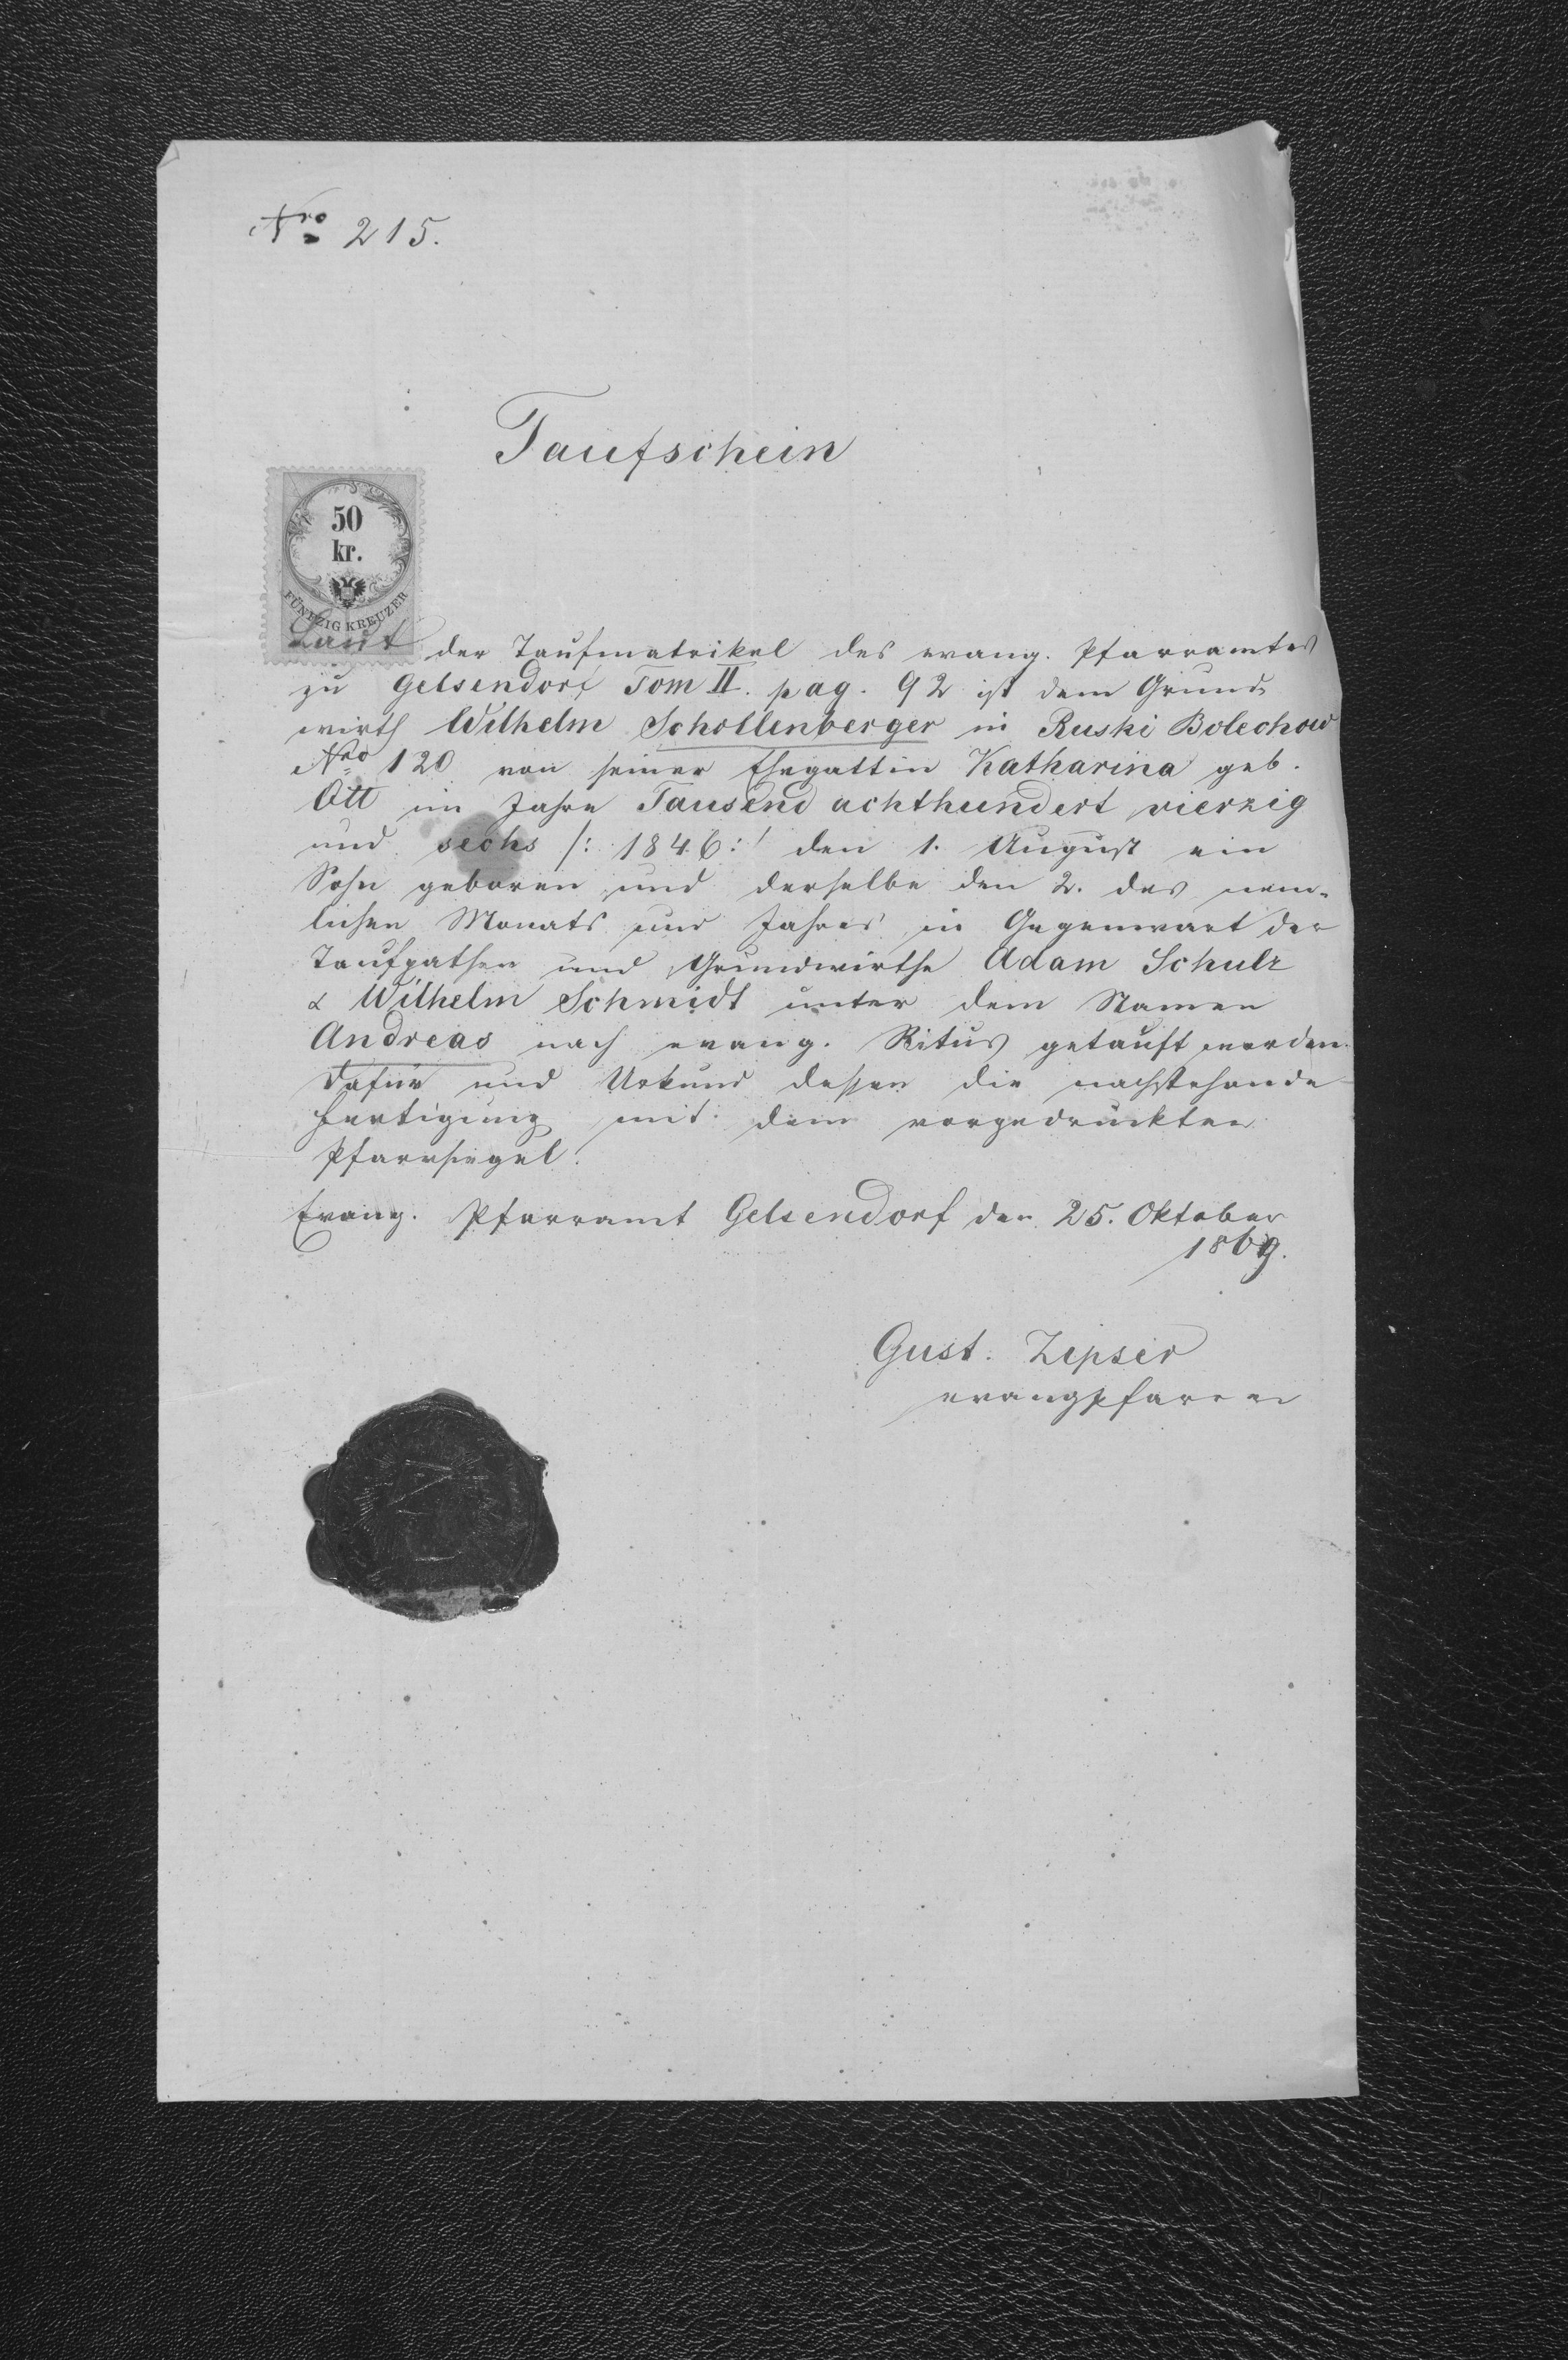 Nro 215.
Taufschein
50
kr.
FÜNFZIG KREUZER
Laut der Taufmatrikel des evang. Pfarramtes
zu Gelsendorf Tom II. pag. 92 ist dem Grund-
wirth Wilhelm Schollenberger in Ruski Bolechow
Nro 120 von seiner Ehegattin Katharina geb.
Ott im Jahre Tausend achthundert vierzig
und sechs /: 1846 :/ den 1. August ein
Sohn geboren und derselbe den 2. des nem-
lichen Monats und Jahres in Gegenwart der
Taufpathen und Grundwirthe Adam Schulz
& Wilhelm Schmidt unter dem Namen
Andreas nach evang. Ritus getauft worden.
Dafür und Urkund dessen die nachstehende
Fertigung mit dem vorgedrückten
Pfarrsiegel.
Evang. Pfarramt Gelsendorf den 25. Oktober
1869.
Gust. Zipser
evang Pfarrer